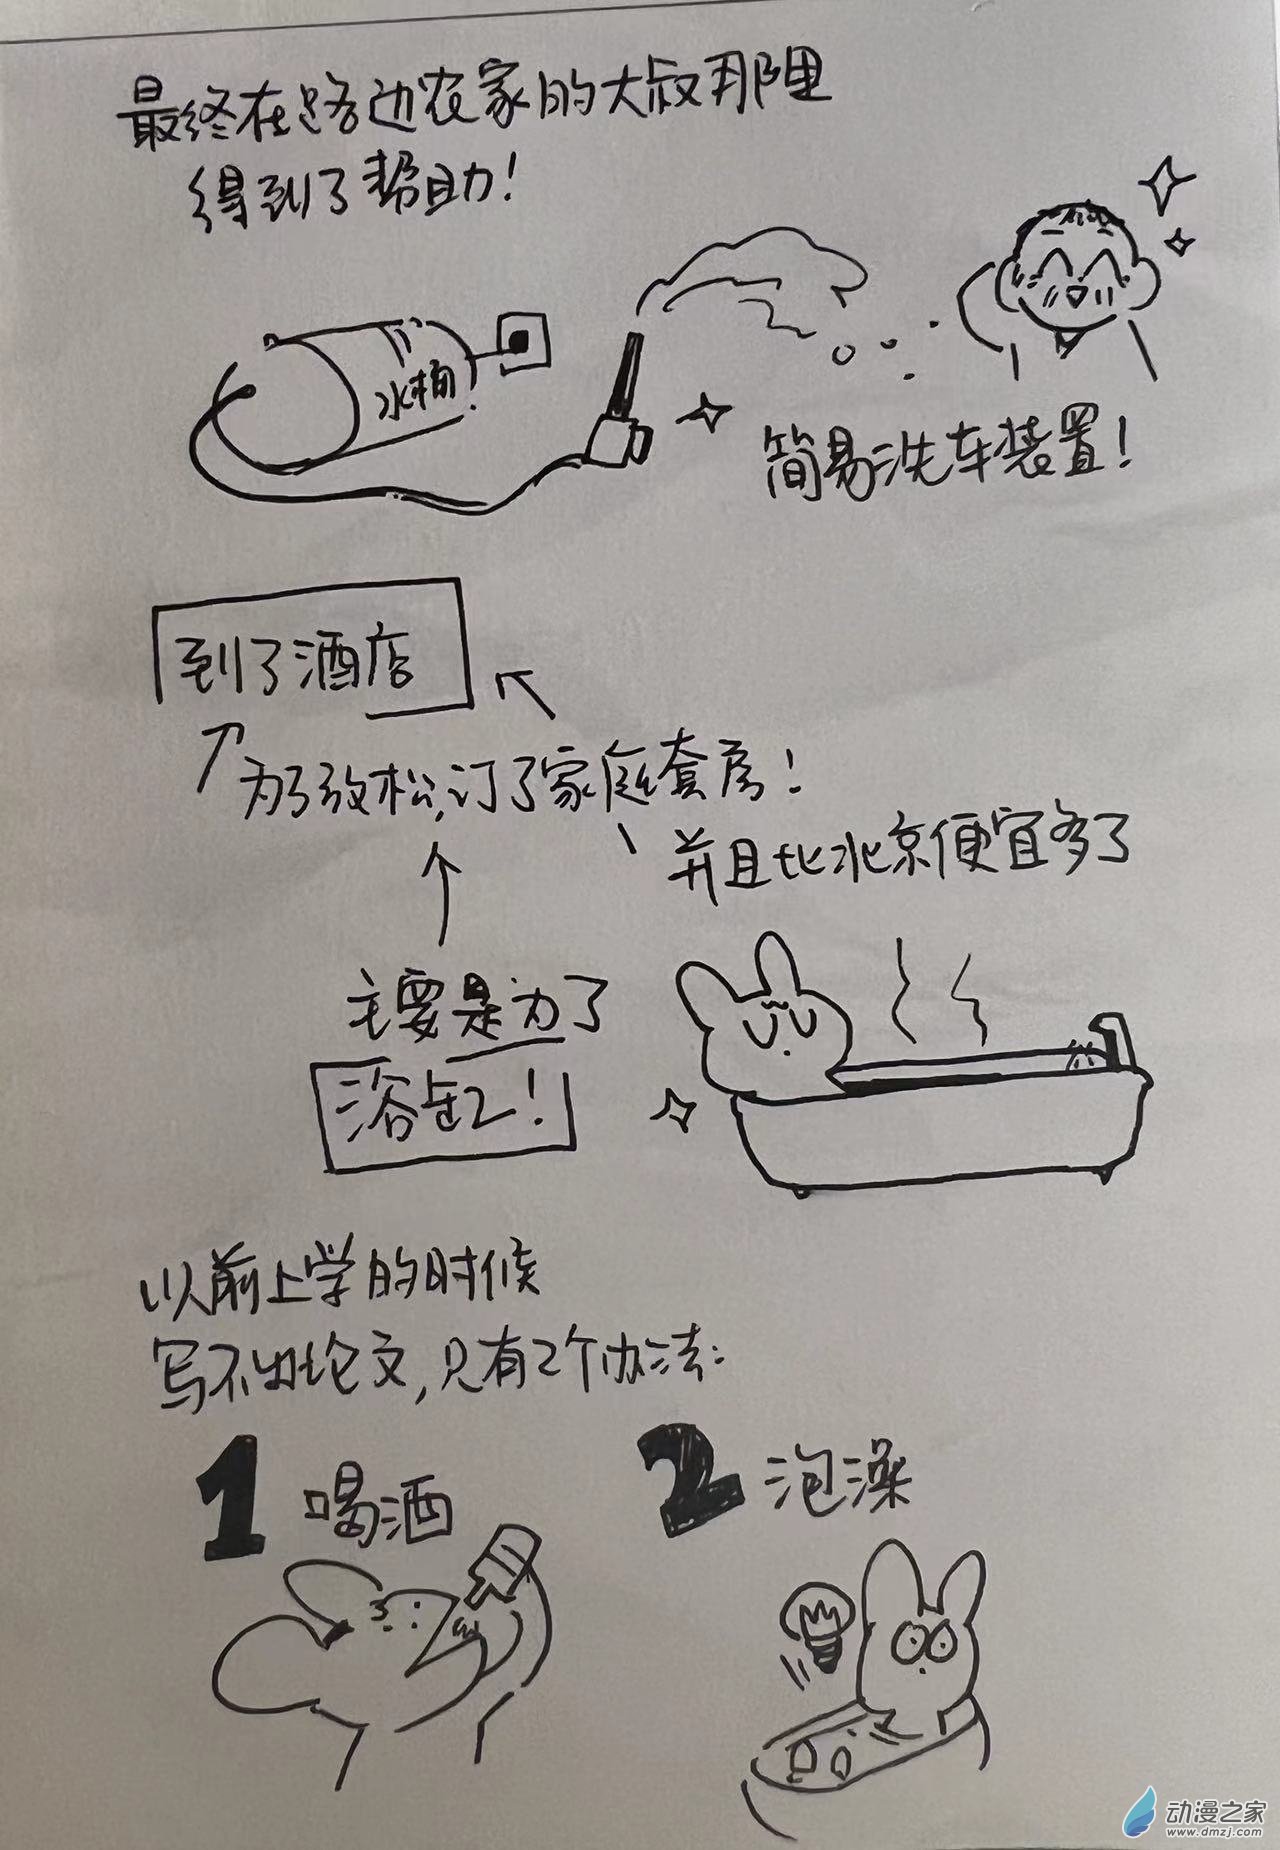 最终在路边农家的大叔那里
得到了帮助！
水桶
简易洗车装置！
到了酒店
为了放松，订了家庭套房！
并且比北京便宜多了
主要是为了
浴缸！
以前上学的时候
写不出论文，只有2个办法：
1 喝酒
2 泡澡
动漫之家
www.dmzj.com